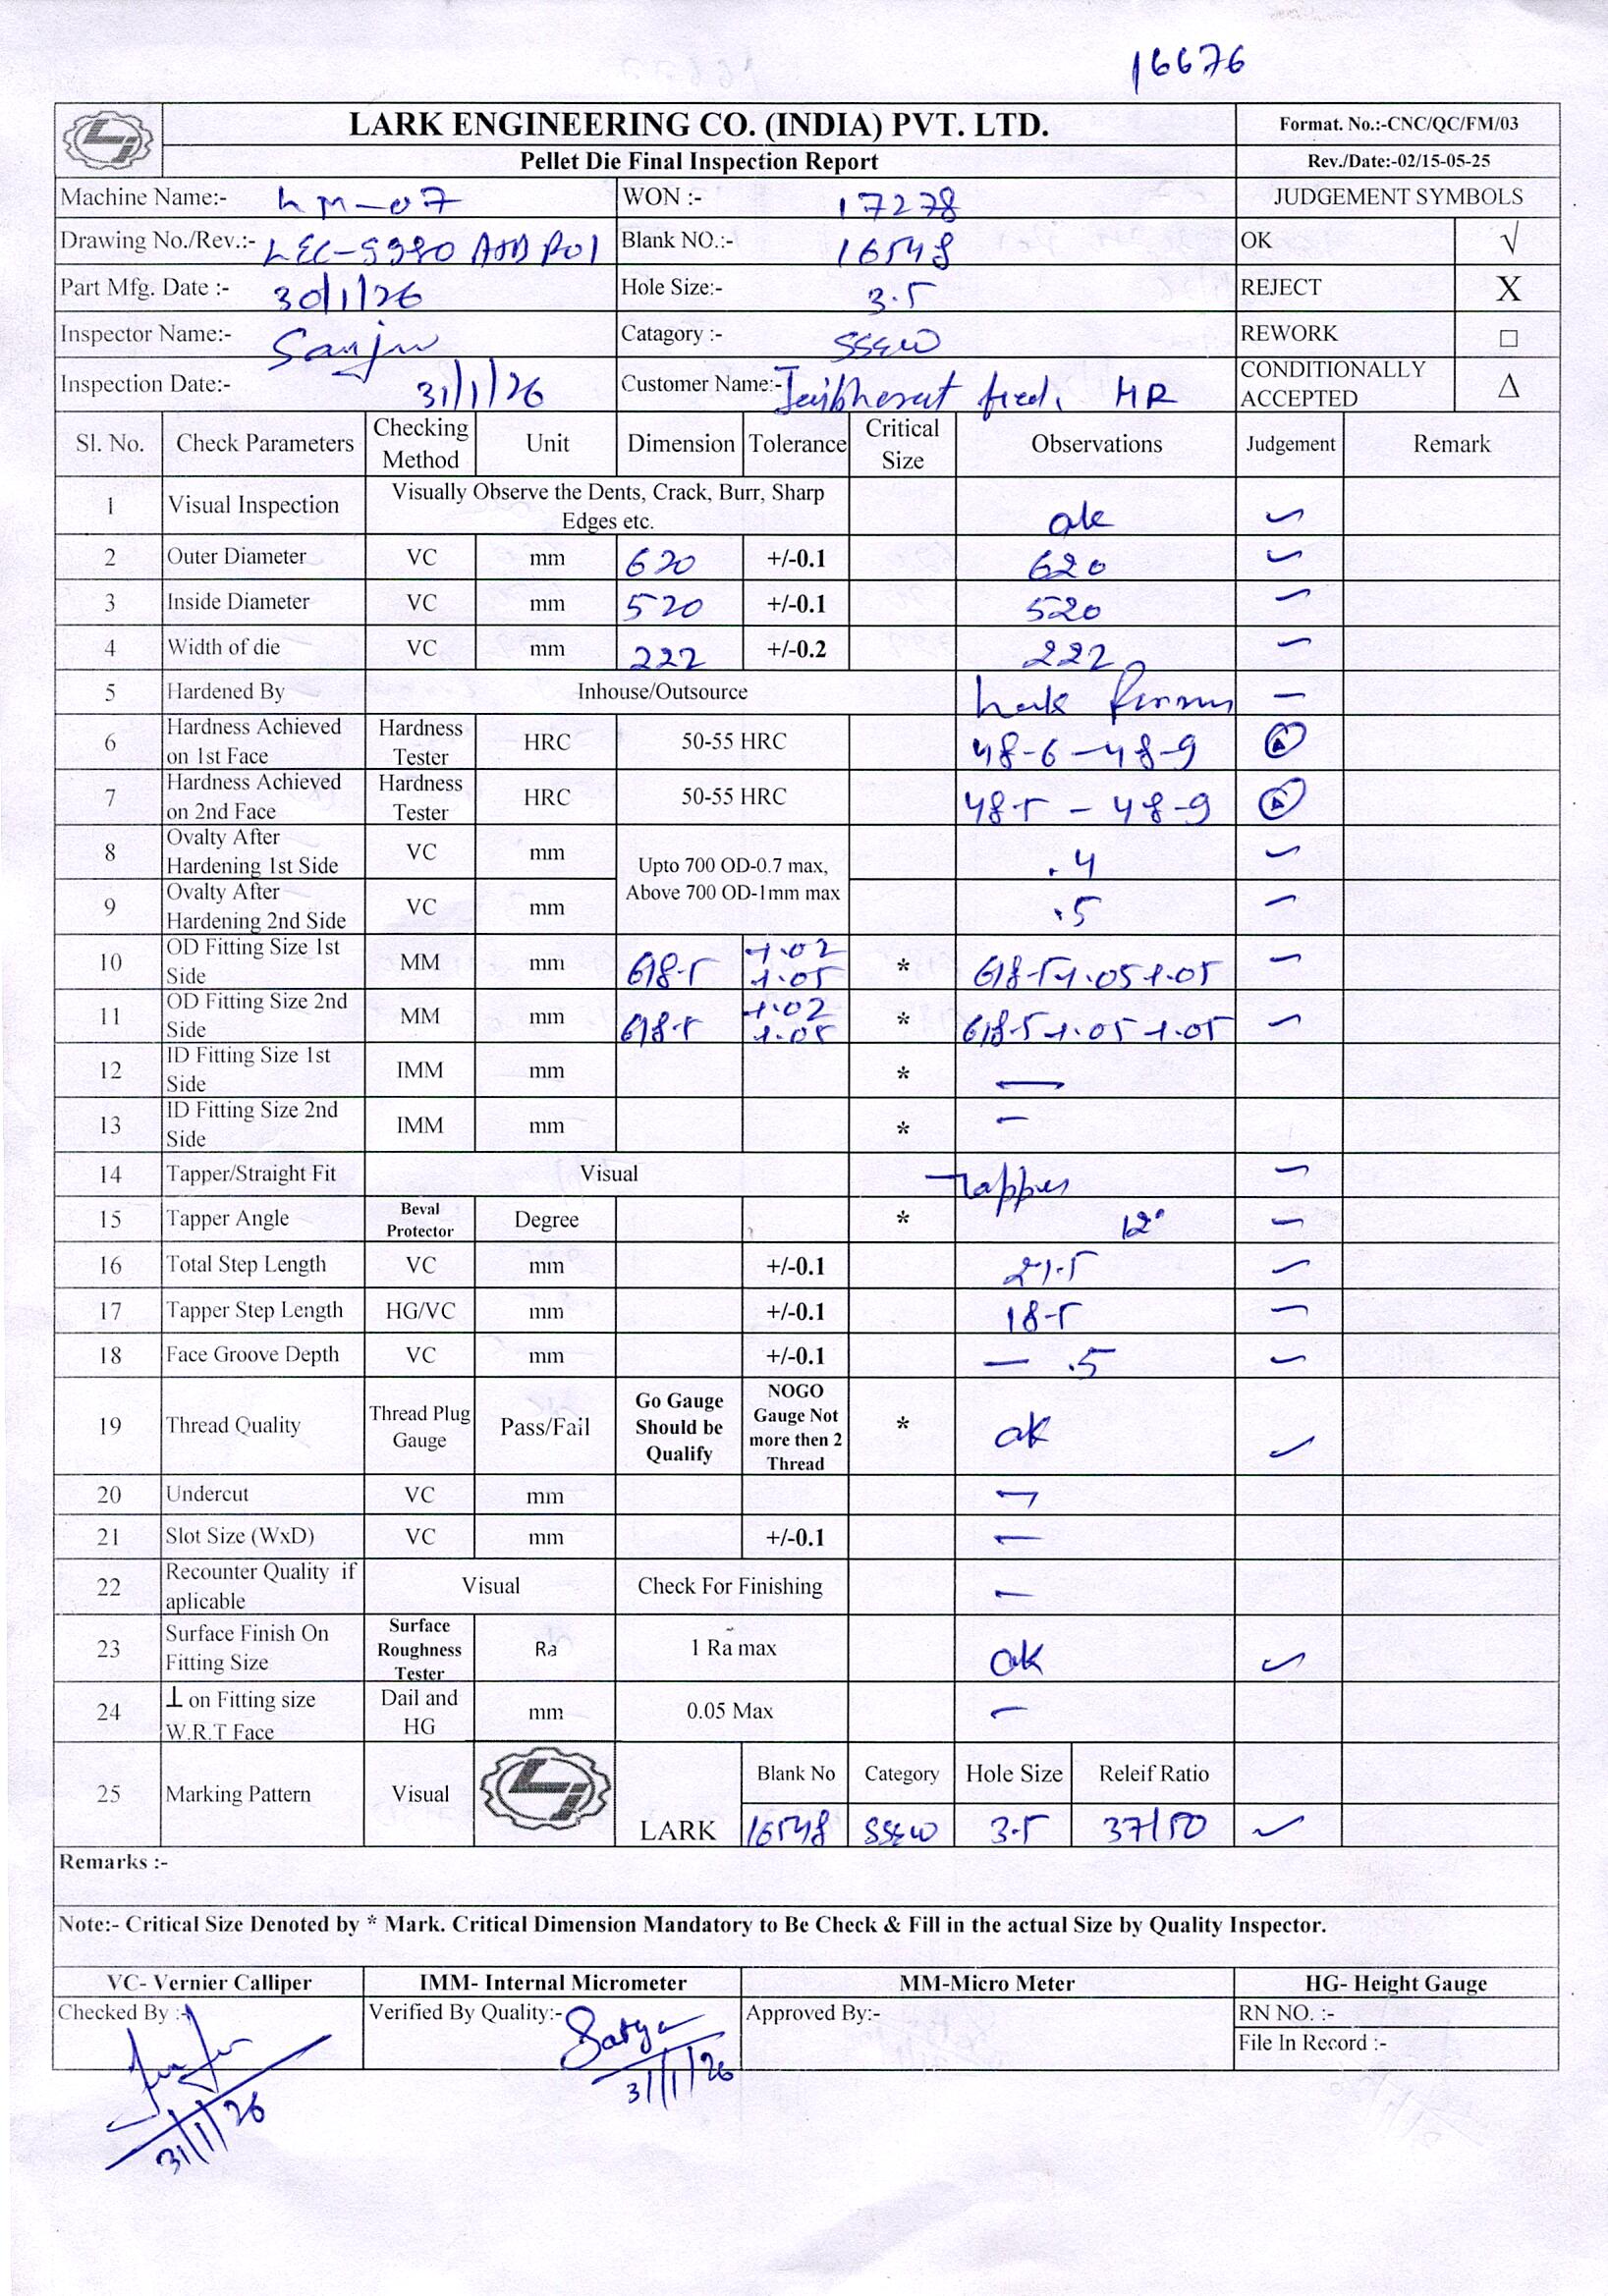 16676
LARK ENGINEERING CO. (INDIA) PVT. LTD.
Format. No.:-CNC/QC/FM/03
Pellet Die Final Inspection Report
Rev./Date:-02/15-05-25
Machine Name:- LM-07 WON :- 17278 JUDGEMENT SYMBOLS
Drawing No./Rev.:- Blank NO.:- 16548 OK √
Part Mfg. Date :- 30/1/26 Hole Size:- 3.5 REJECT X
Inspector Name:- Sanju Catagory :- REWORK □
Inspection Date:- 31/1/26 Customer Name:- feed, HR CONDITIONALLY ACCEPTED Δ
Sl. No. Check Parameters Checking Method Unit Dimension Tolerance Critical Size Observations Judgement Remark
1 Visual Inspection Visually Observe the Dents, Crack, Burr, Sharp Edges etc. ok ✓
2 Outer Diameter VC mm 620 +/-0.1 620 ✓
3 Inside Diameter VC mm 520 +/-0.1 520 ✓
4 Width of die VC mm 222 +/-0.2 222 ✓
5 Hardened By Inhouse/Outsource Lark —
6 Hardness Achieved on 1st Face Hardness Tester HRC 50-55 HRC 48-6 – 48-9 Δ
7 Hardness Achieved on 2nd Face Hardness Tester HRC 50-55 HRC 48-5 – 48-9 Δ
8 Ovalty After Hardening 1st Side VC mm Upto 700 OD-0.7 max, Above 700 OD-1mm max .4 ✓
9 Ovalty After Hardening 2nd Side VC mm .5 ✓
10 OD Fitting Size 1st Side MM mm 618-5 +.02 +.05 * 618-5+.05+.05 ✓
11 OD Fitting Size 2nd Side MM mm 618-5 +.02 +.05 * 618-5+.05+.05 ✓
12 ID Fitting Size 1st Side IMM mm * —
13 ID Fitting Size 2nd Side IMM mm * —
14 Tapper/Straight Fit Visual Tapper ✓
15 Tapper Angle Beval Protector Degree * 12° ✓
16 Total Step Length VC mm +/-0.1 21.5 ✓
17 Tapper Step Length HG/VC mm +/-0.1 18-5 ✓
18 Face Groove Depth VC mm +/-0.1 — .5 ✓
19 Thread Quality Thread Plug Gauge Pass/Fail Go Gauge Should be Qualify NOGO Gauge Not more then 2 Thread * ok ✓
20 Undercut VC mm —
21 Slot Size (WxD) VC mm +/-0.1 —
22 Recounter Quality if aplicable Visual Check For Finishing —
23 Surface Finish On Fitting Size Surface Roughness Tester Ra 1 Ra max ok ✓
24 ⊥ on Fitting size W.R.T Face Dail and HG mm 0.05 Max —
25 Marking Pattern Visual LARK Blank No Category Hole Size Releif Ratio
16548 3.5 37/50 ✓
Remarks :-
Note:- Critical Size Denoted by * Mark. Critical Dimension Mandatory to Be Check & Fill in the actual Size by Quality Inspector.
VC- Vernier Calliper IMM- Internal Micrometer MM-Micro Meter HG- Height Gauge
Checked By :- Verified By Quality:- Satya Approved By:- RN NO. :-
File In Record :-
31/1/26 31/1/26